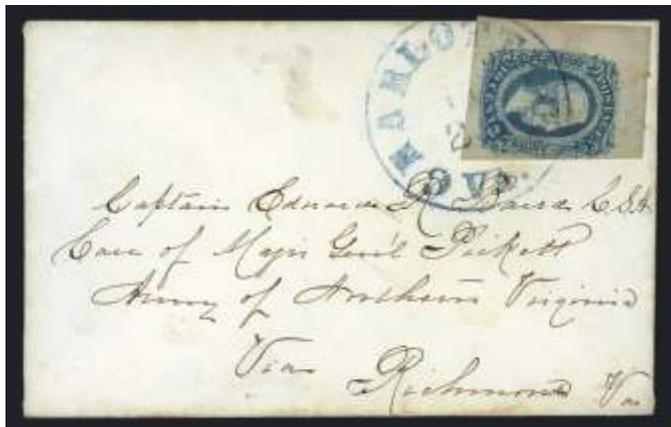 CHARLOTTE
VA.
Captain Edward R. Baird C.S.A.
Care of Majr Genl Pickett
Army of Northern Virginia
Via
Richmond Va